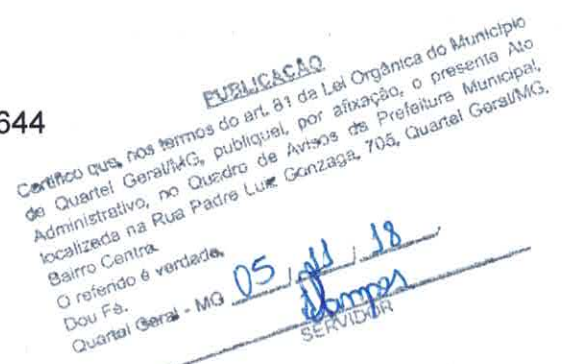 644
PUBLICAÇÃO
Certifico que, nos termos do art. 81 da Lei Orgânica do Município
de Quartel Geral/MG, publiquei, por afixação, o presente Ato
Administrativo, no Quadro de Avisos da Prefeitura Municipal,
localizada na Rua Padre Luiz Gonzaga, 705, Quartel Geral/MG.
Bairro Centro.
O referido é verdade.
Dou Fé.
Quartel Geral - MG 05 / 11 / 18
SERVIDOR